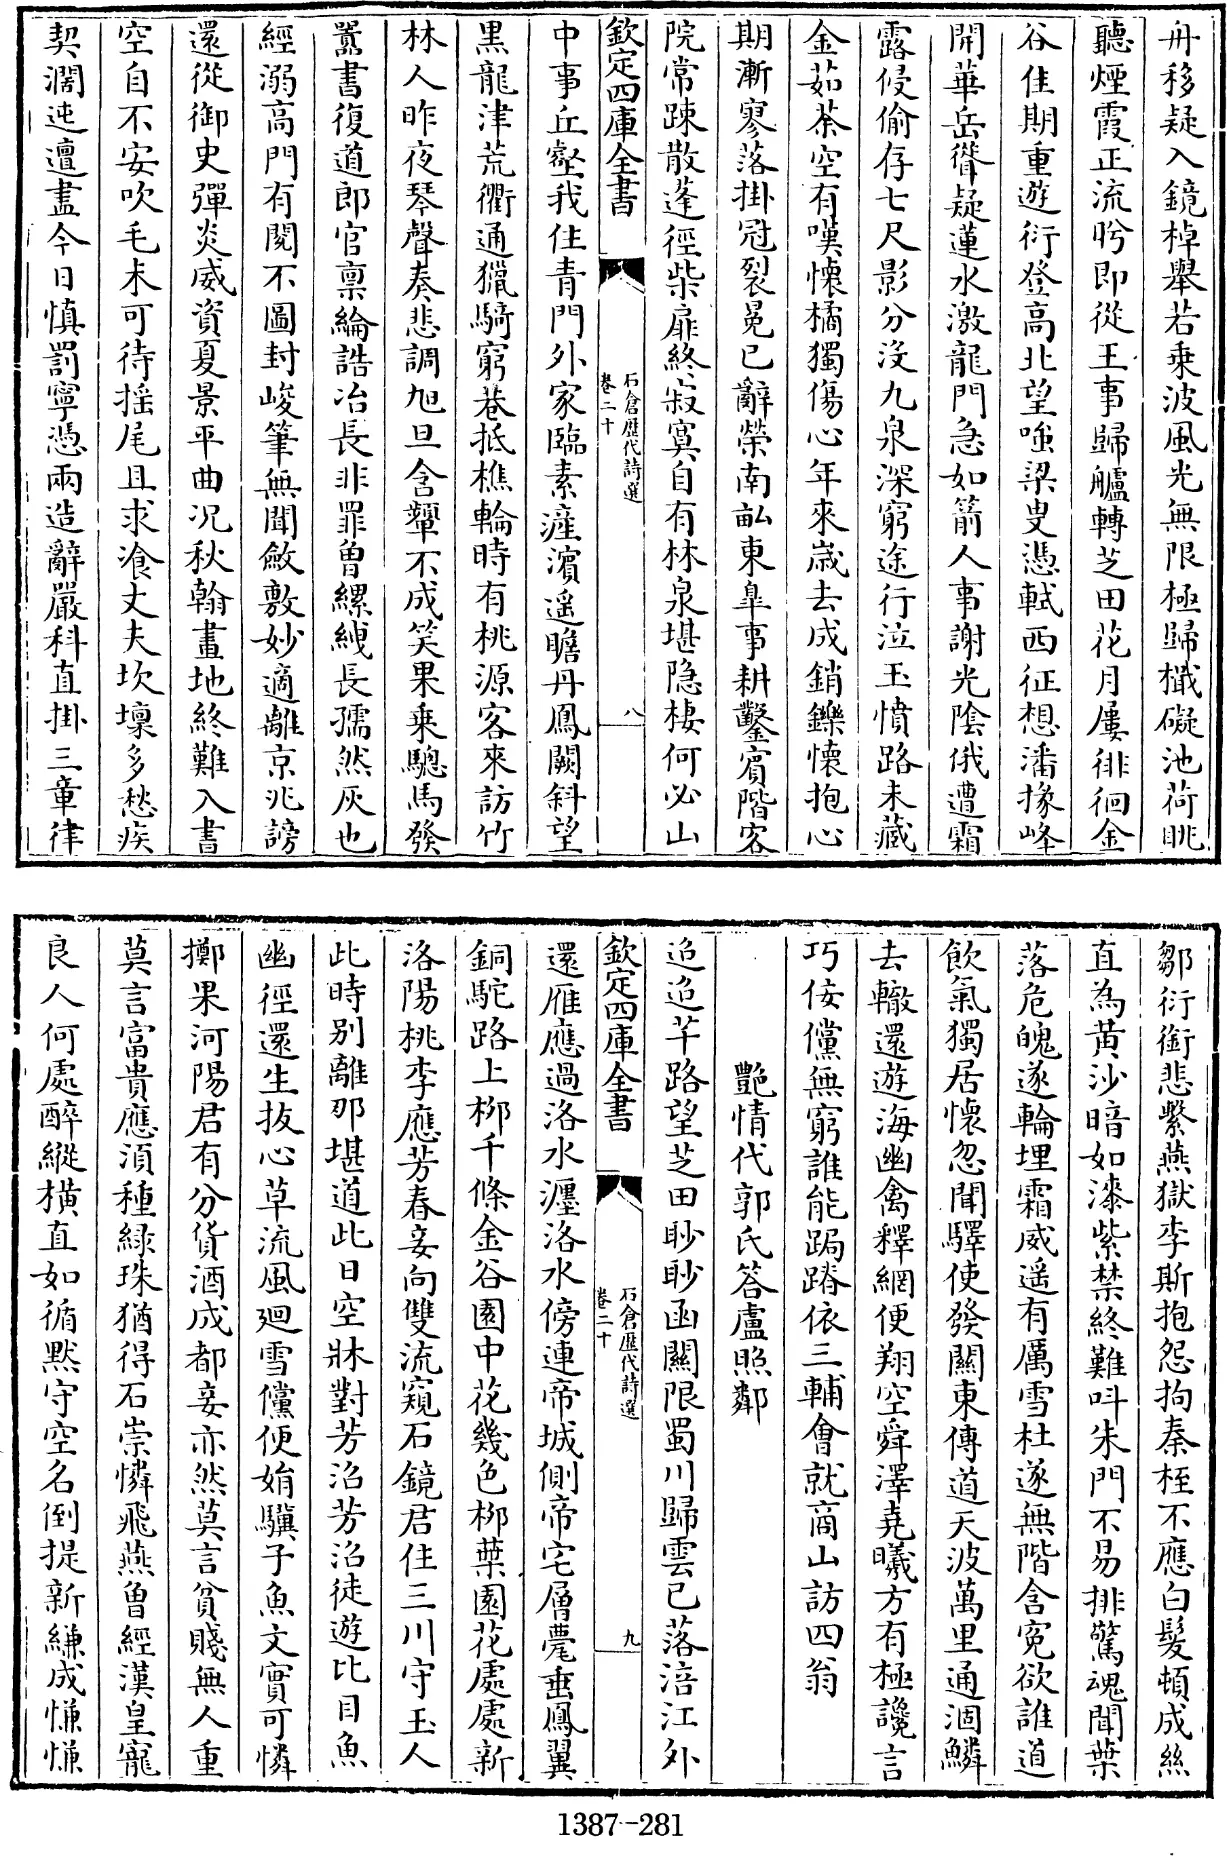 舟移疑入鏡棹舉若乗波風光無限極歸檝礙池荷眺
聽煙霞正流盻即從王事歸艫轉芝田花月屢徘徊金
谷佳期重遊衍登高北望嗤梁叟憑軾西征想潘掾峰
開華岳聳疑蓮水激龍門急如箭人事謝光陰俄遭霜
露侵偷存七尺影分沒九泉深窮途行泣玉憤路未藏
金茹荼空有嘆懷橘獨傷心年來嵗去成銷鑠懷抱心
期漸寥落掛冠裂冕已辭榮南畝東臯事耕鑿賓階客
院常踈散蓬徑柴扉終寂寞自有林泉堪隠棲何必山
欽定四庫全書
石倉歴代詩選
卷二十
八
中事丘壑我住青門外家臨素滻濱遥瞻丹鳳闕斜望
黒龍津荒衢通獵騎窮巷抵樵輪時有桃源客來訪竹
林人昨夜琴聲奏悲調旭旦含顰不成笑果乗驄馬發
囂書復道郎官禀綸誥冶長非罪曾縲絏長孺然灰也
經溺高門有閱不圖封峻筆無聞斂敷妙適離京兆謗
還從御史彈炎威資夏景平曲况秋翰畫地終難入書
空自不安吹毛未可待揺尾且求飡丈夫坎壈多愁疾
契濶迍邅盡今日慎罰寧憑兩造辭嚴科直掛三章律
鄒衍銜悲繫燕獄李斯抱怨拘秦桎不應白髮頓成絲
直為黄沙暗如漆紫禁終難叫朱門不易排驚魂聞葉
落危魄逐輪埋霜威遥有厲雪杜遂無階含寃欲誰道
飲氣獨居懷忽聞驛使發關東傳道天波萬里通涸鱗
去轍還遊海幽禽釋網便翔空舜澤堯曦方有極讒言
巧佞儻無窮誰能跼蹐依三輔會就商山訪四翁
豔情代郭氏答盧照鄰
迢迢芊路望芝田眇眇函關限蜀川歸雲已落涪江外
欽定四庫全書
石倉歴代詩選
卷二十
九
還雁應過洛水瀍洛水傍連帝城側帝宅層甍垂鳳翼
銅駝路上栁千條金谷園中花幾色栁葉園花處處新
洛陽桃李應芳春妾向雙流窺石鏡君住三川守玉人
此時别離那堪道此日空牀對芳沼芳沼徒遊比目魚
幽徑還生拔心草流風廻雪儻便娟驥子魚文實可憐
擲果河陽君有分貨酒成都妾亦然莫言貧賤無人重
莫言富貴應須種緑珠猶得石崇憐飛燕曾經漢皇寵
良人何處醉縱横直如循黙守空名倒提新縑成慊慊
1387-281